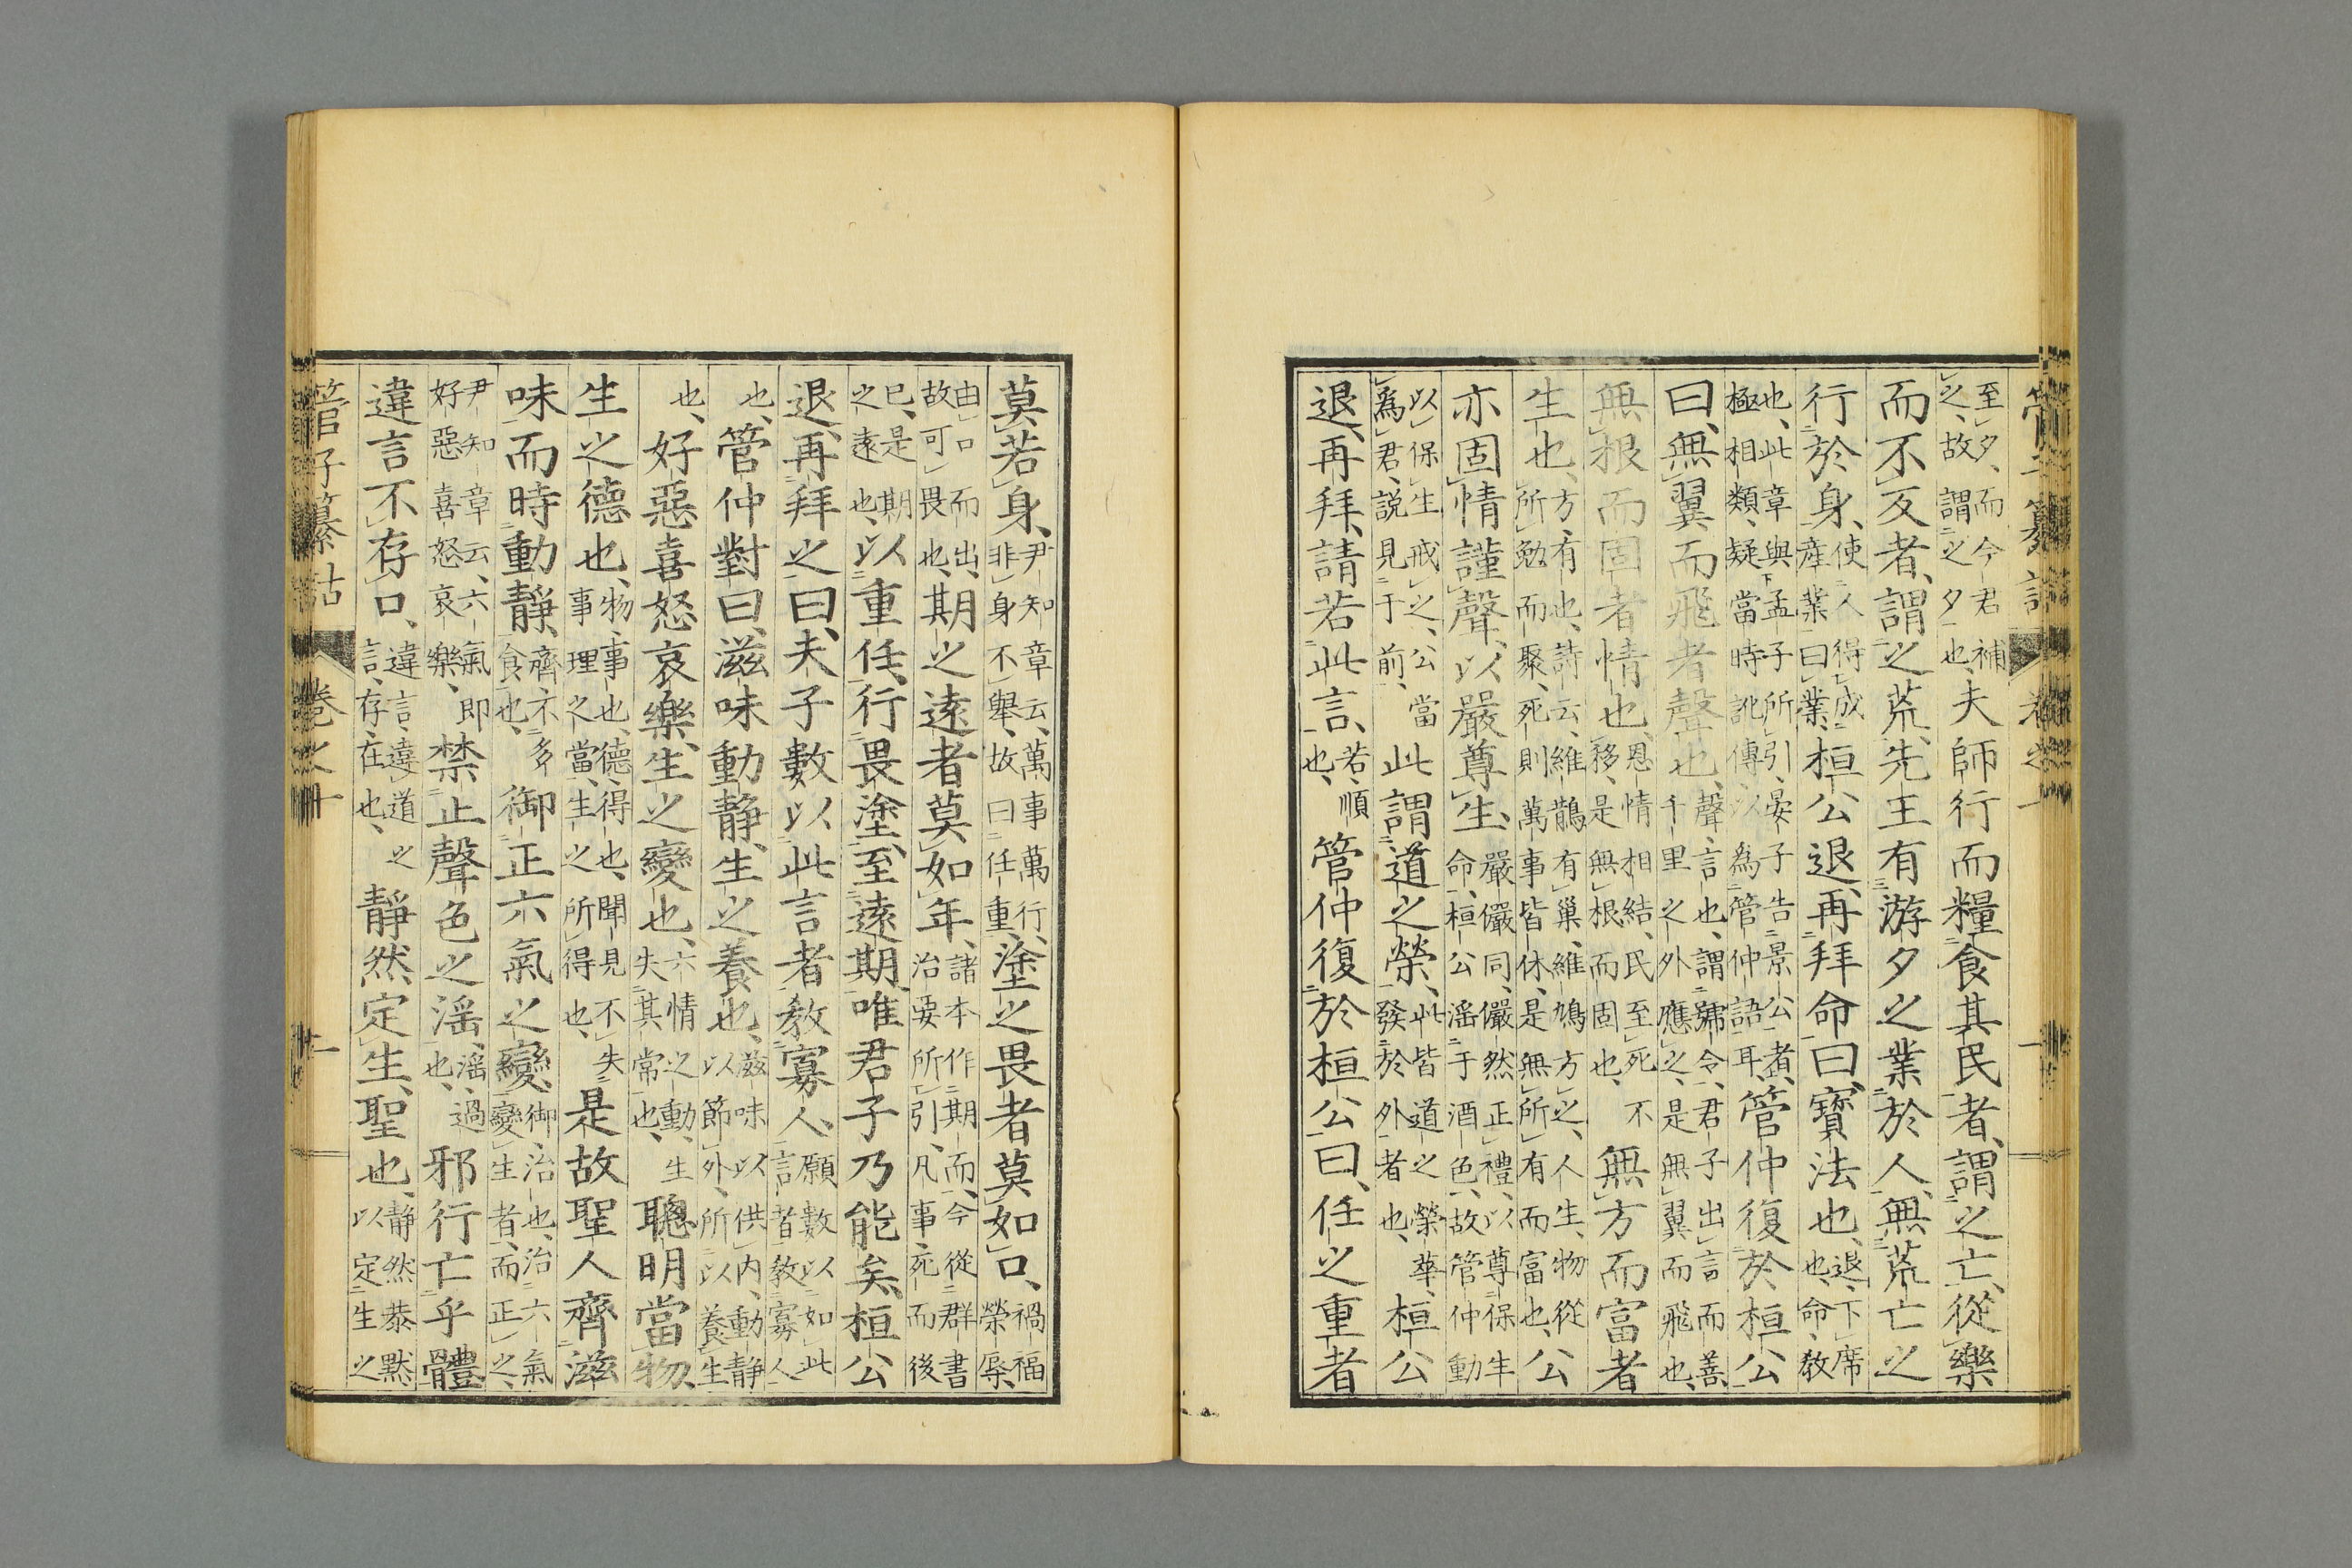 管子纂詁 卷之十 一
至夕、而今君補之、故謂之夕也、夫師行而糧食其民者、謂之亡、從樂
而不反者、謂之荒、先王有游夕之業於人、無荒亡之
行於身、使人得成産業曰業、桓公退、再拜命曰、寶法也、退、下席也、命、教
也、此章與孟子所引、晏子告景公者、極相類、疑當時訛傳、以為管仲語耳、管仲復於桓公
曰、無翼而飛者聲也、聲、言也、謂號令、君子出言而善、千里之外應之、是無翼而飛也、
無根而固者情也、恩情相結、民至死不移、是無根而固也、無方而富者
生也、方、有也、詩云、維鵲有巢、維鳩方之、人生、物從所勉而聚、死則萬事皆休、是無所有而富也、公
亦固情謹聲、以嚴尊生、嚴儼同、儼然正禮、以尊保生命、桓公滛于酒色、故管仲動
以保生戒之、公當為君、説見于前、此謂道之榮、此皆道之榮華、發於外者也、桓公
退、再拜、請若此言、若、順也、管仲復於桓公曰、任之重者
莫若身、尹知章云、萬事萬行、非身不舉、故曰任重、塗之畏者莫如口、禍福榮辱、
由口而出、故可畏也、期之遠者莫如年、諸本作期而、今從群書治要所引、凡事、死而後
已、是期之遠也、以重任、行畏塗、至遠期、唯君子乃能矣、桓公
退、再拜之曰、夫子數以此言者教寡人、願數以如此言者教寡人
也、管仲對曰、滋味動静、生之養也、滋味以供内、動静以節外、所以養生
也、好惡喜怒哀樂、生之變也、六情之動、生失其常也、聰明當物、
生之德也、物、事也、德得也、聞見不失事理之當、生之所得也、是故聖人齊滋
味而時動靜、齊、不多食也、御正六氣之變、御、治也、治六氣變生者、而正之、
尹知章云、六氣、即好惡喜怒哀樂、禁止聲色之滛、滛、過也、邪行亡乎體
違言不存口、違言、違道之言、存、在也、靜然定生、聖也、静然恭黙、以定生之
管子纂詁 卷之十 一